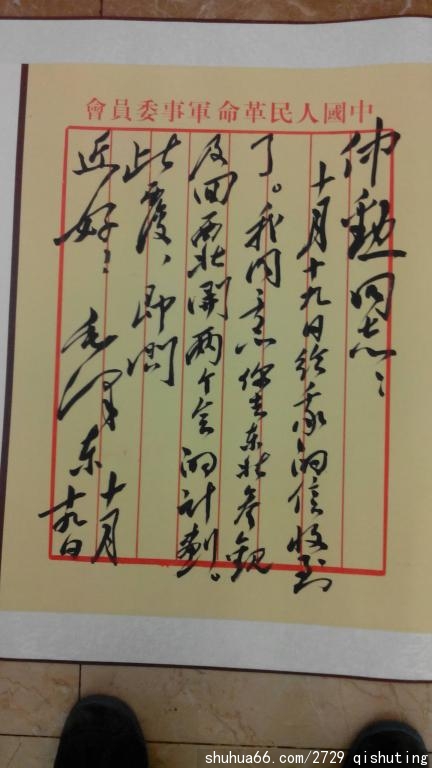 會員委事軍命革民人國中
仲勳同志：
十月十九日给我的信收到
了。我同意你去东北参觀
及回西北開两个会的计劃。
此覆，即問
近好！
毛泽东
十月
十九日
shuhua66.com/2729 qishuting